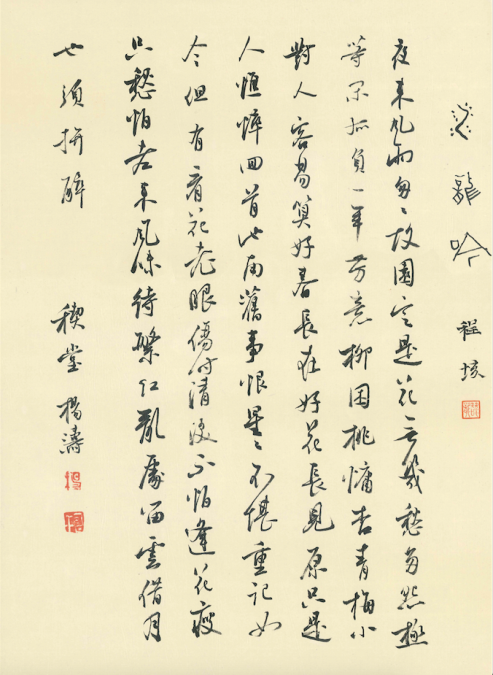 水龍吟 程垓
夜来風雨匆〻故園定是花无幾愁多怨極
等閑孤負一年芳意柳困桃慵杏青梅小
對人容易算好春長在好花長見原只是
人憔悴回首池南舊事恨星〻不堪重記如
今但有看花老眼傷时清淚不怕逢花瘦
只愁怕老来風味待繁红亂處留雲借月
也須拚醉
稧堂 楊濤